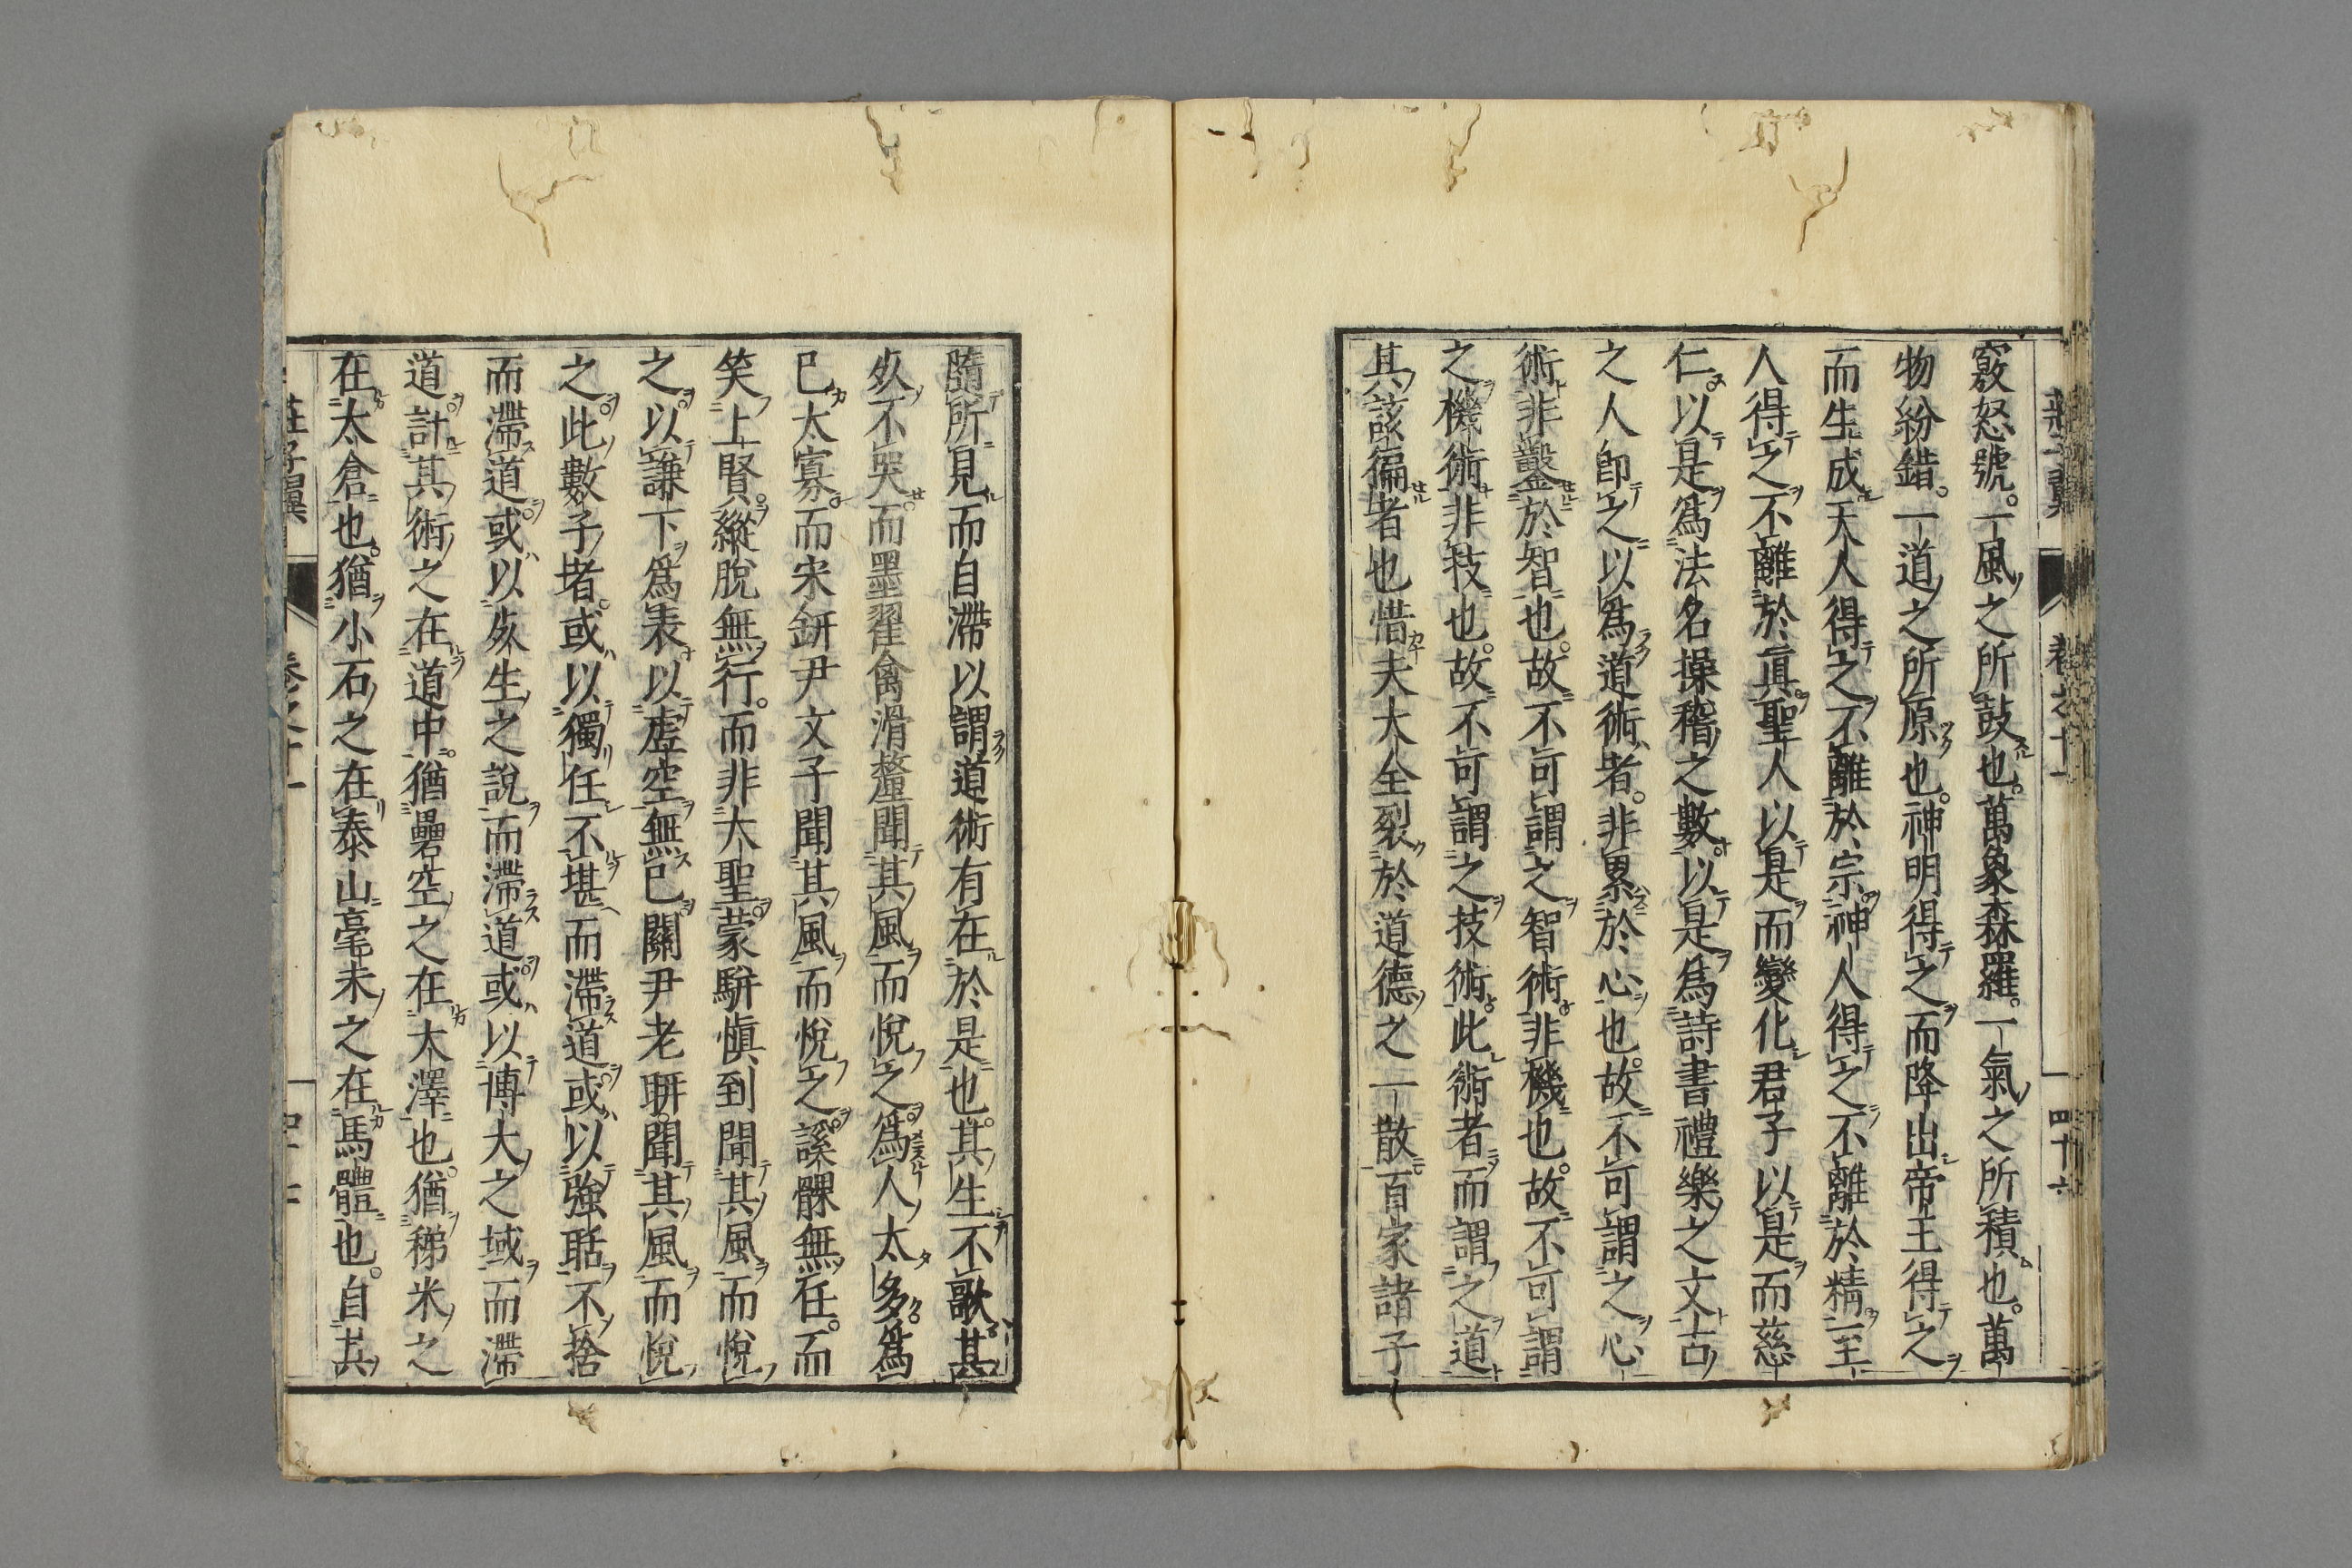 竅怒號。一風之所鼓也。萬象森羅。一氣之所積也。萬
物紛錯。一道之所原也。神明得之而降出帝王得之
而生成天人得之不離於宗神人得之不離於精至
人得之不離於眞聖人以是而變化君子以是而慈
仁。以是爲法名操稽之數以是爲詩書禮樂之文古
之人卽之以爲道術者。非累於心也。故不可謂之心
術非鑿於智也。故不可謂之智術非機也。故不可謂
之機術非技也。故不可謂之技術此術者而謂之道
其該徧者也惜夫大全裂於道德之一散百家諸子
隨所見而自滯以謂道術有在於是也。其生不歌其
死不哭而墨翟禽滑釐聞其風而悅之爲人太多爲
已太寡而宋鈃尹文子聞其風而悅之謑髁無任。而
笑上賢縱脫無行。而非大聖蒙駢愼到聞其風而悅
之以謙下爲表以虛空無已關尹老聃聞其風而悅
之此數子者。或以獨任不堪而滯道或以強聒不捨
而滯道或以死生之說而滯道或以博大之域而滯
道計其術之在道中。猶礨空之在大澤也。猶稊米之
在太倉也。猶小石之在泰山毫末之在馬體也。自其
莊子翼 卷之十一 四十六
莊子翼 卷之十一